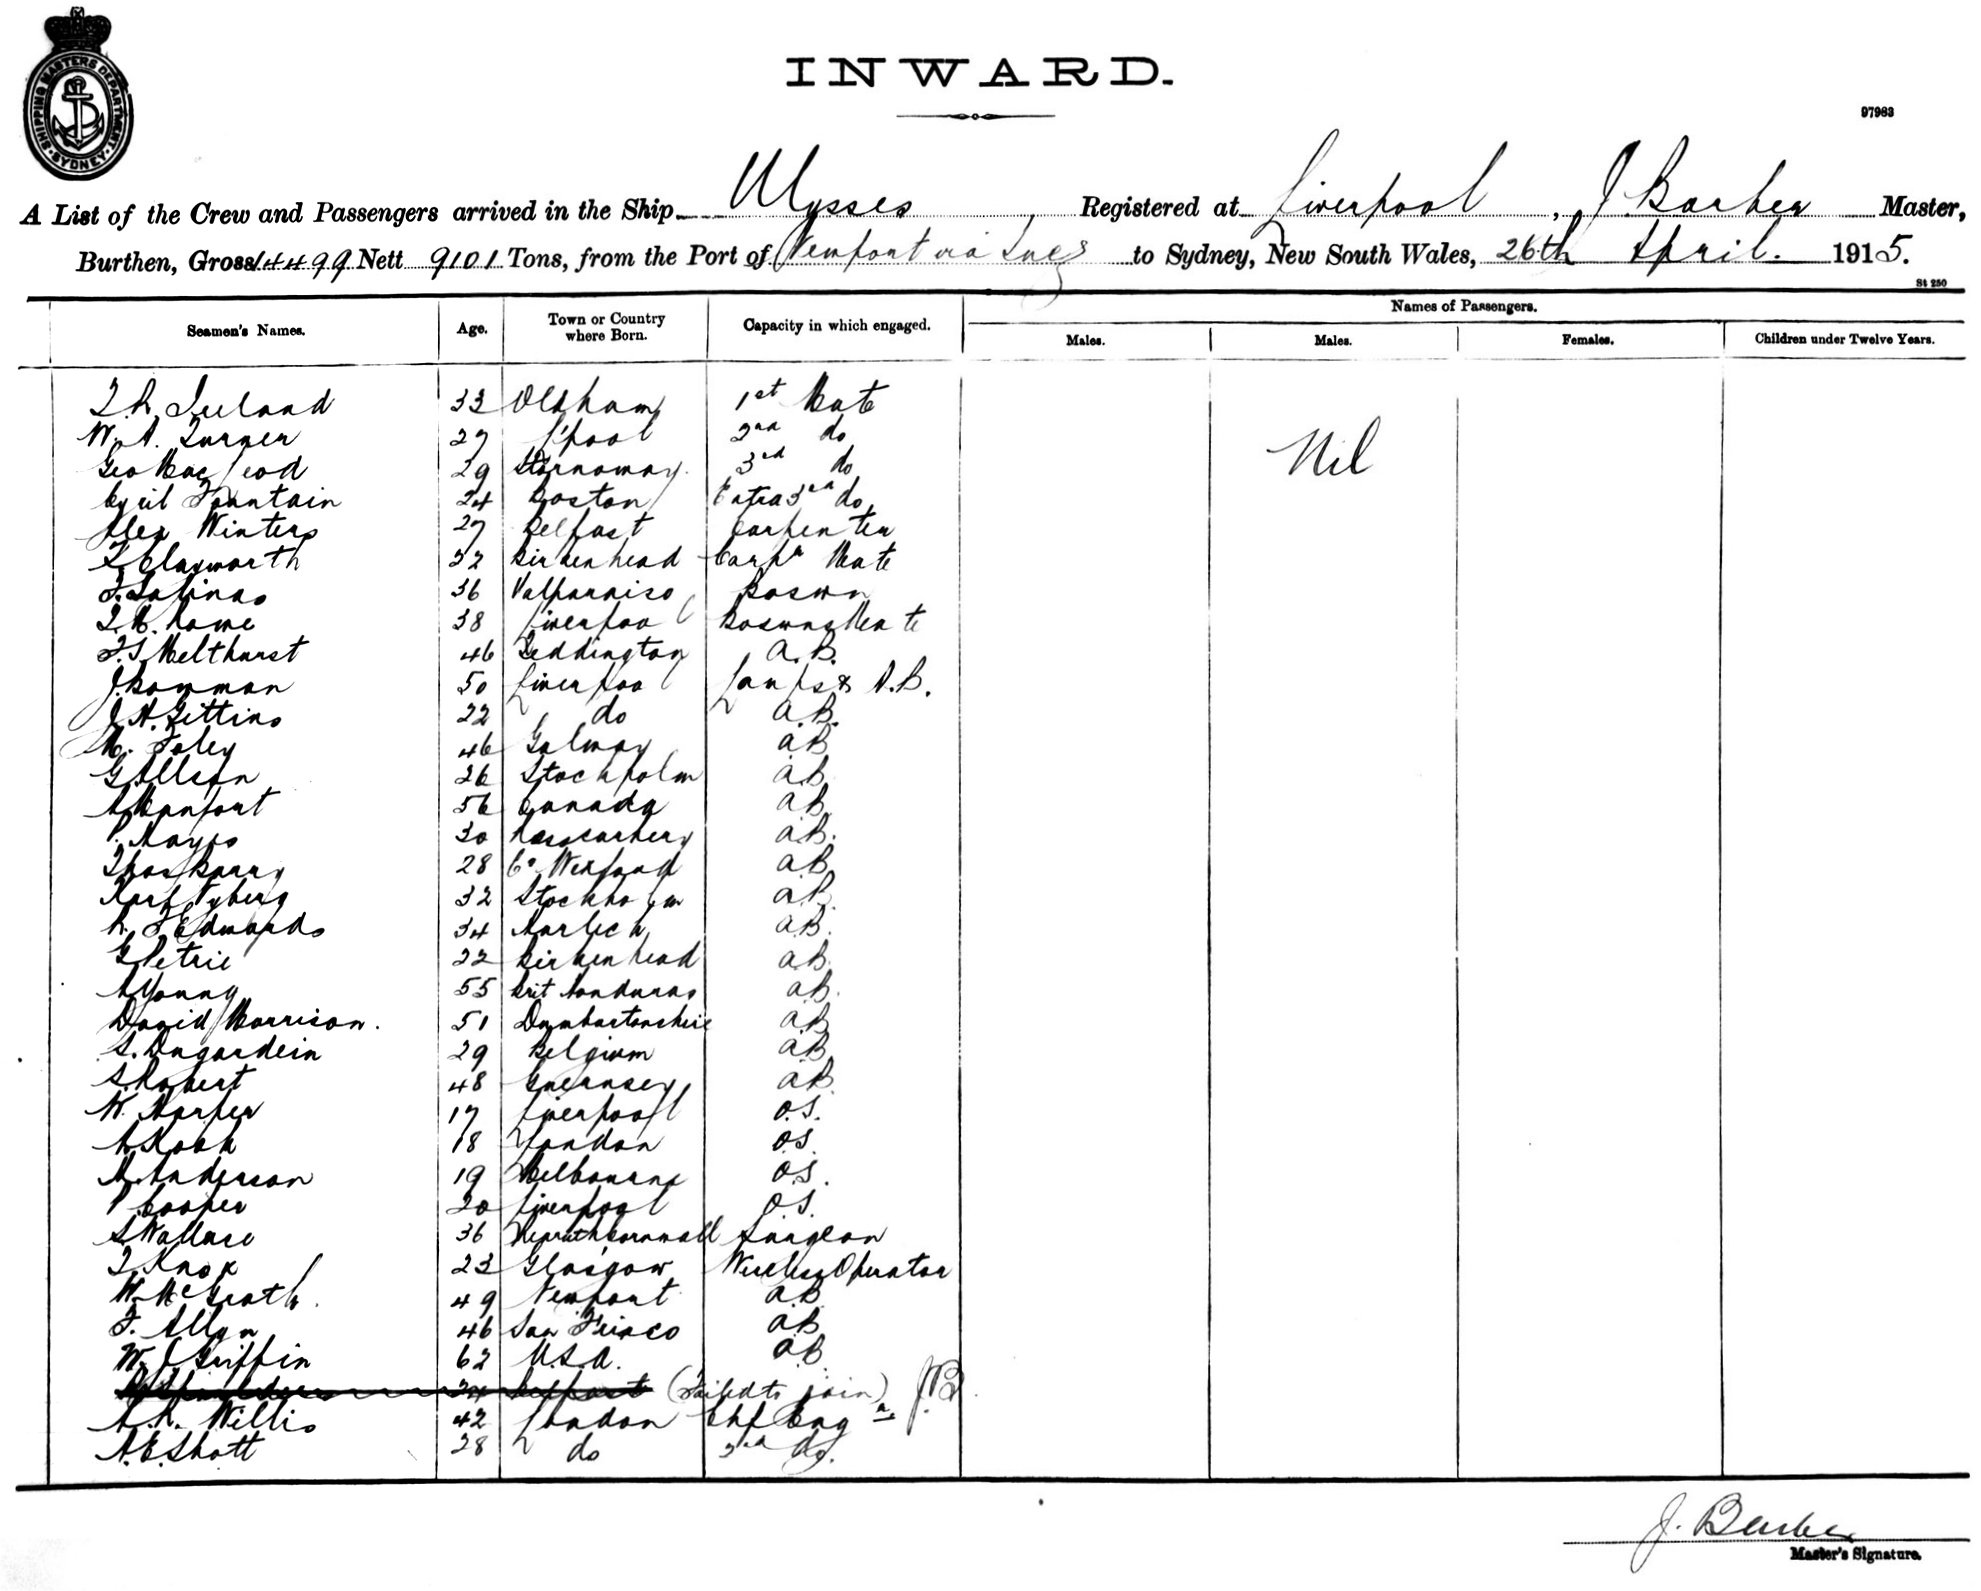 SHIPPING MASTERS DEPARTMENT. SYDNEY
INWARD.
97983
A List of the Crew and Passengers arrived in the Ship Ulysses, Registered at Liverpool, J. Barber Master,
Burthen, Gross 14499 Nett 9101 Tons, from the Port of Newport via Suez to Sydney, New South Wales, 26th April. 1915.
St 250
Seamen's Names. Age. Town or Country where Born. Capacity in which engaged. Names of Passengers.
Males. Males. Females. Children under Twelve Years.
33 Oldham 1st Mate
W. A. Turner 27 L'pool 2nd do
Nil
Geo MacLeod 29 Stornoway. 3rd do
Cyril Fountain 24 Boston Extra 3rd do
Alex Winters 27 Belfast Carpenter
Clayworth 22 Birkenhead Carpr Mate
Salinas 36 Valparaiso Boswn
Rowe 38 Liverpool Boswns Mate
Melthurst 46 Teddington A.B.
J. Bowman 50 Liverpool Lamps & A.B.
J. H. Gittins 22 do A.B.
M. Foley 46 Galway A.B
G Allson 26 Stockholm A.B
A Monfort 56 Canada A.B
P. Hayes 30 Rosscarbery A.B.
Thos Barry 28 Co Wexford A.B
Karl Nyberg 32 Stockholm A.B.
R. J Edwards 34 Harlech A.B.
G Petrie 22 Birkenhead A.B
A Young 55 Brit Honduras A.B.
David Morrison. 51 Dumbartonshire A.B
S. Dugardein 29 Belgium A.B
S. Robert 48 Guernsey A.B
W. Harper 17 Liverpool O.S.
A Kook 18 London O.S.
A. Anderson 19 Melbourne O.S.
P Cooper 20 Liverpool O.S.
S Wallace 36 Cornwall Surgeon
T Knox 23 Glasgow Wireless Operator
W. McGrath. 49 Newport A.B
F. Allan 46 San Frisco A.B
W. J Griffin 62 U.S.A. A.B
24 Belfast (Failed to join) J.B.
A. R. Willis 42 London Chf Engr
A. E. Shott 28 do 2nd do.
J. Barber
Master's Signature.